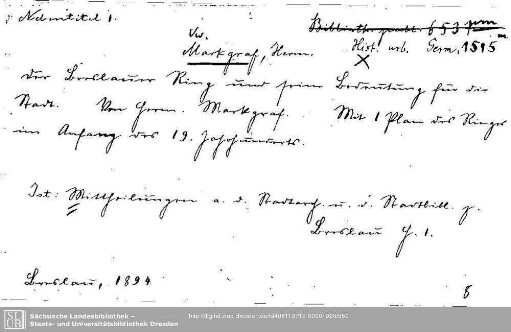 Nebentitel 1.
Vw.
Markgraf, Herm.
Hist. urb. Germ. 1515 m
Der Breslauer Ring und seine Bedeutung für die
Stadt. Von Herm. Markgraf. Mit 1 Plan des Ringes
im Anfang des 19. Jahrhunderts.
Ist: Mittheilungen a. d. Stadtarch. u. d. Stadtbibl. z.
Breslau H. 1.
Breslau, 1894
8
Sächsische Landesbibliothek –
Staats- und Universitätsbibliothek Dresden